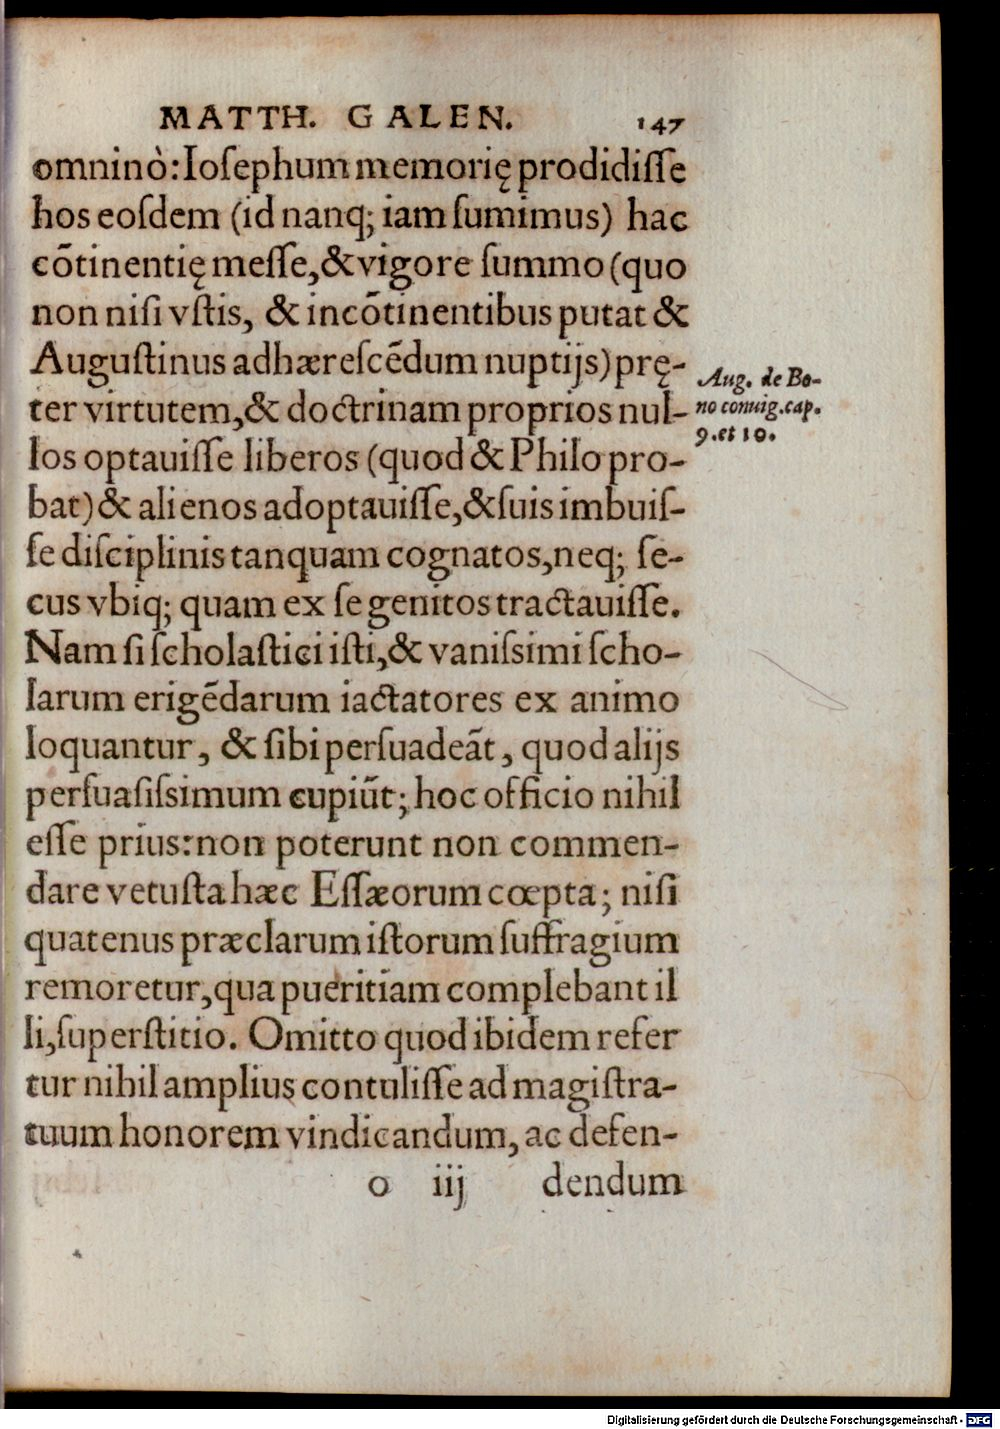 MATTH. GALEN. 147
omninò: Ioſephum memorię prodidiſſe
hos eoſdem (id nanq; iam ſumimus) hac
cõtinentię meſſe, & vigore ſummo (quo
non niſi vſtis, & incõtinentibus putat &
Auguſtinus adhæreſcẽdum nuptijs) prę-
ter virtutem, & doctrinam proprios nul-
los optauiſſe liberos (quod & Philo pro-
bat) & alienos adoptauiſſe, & ſuis imbuiſ-
ſe diſciplinis tanquam cognatos, neq; ſe-
cus vbiq; quam ex ſe genitos tractauiſſe.
Nam ſi ſcholaſtici iſti, & vaniſsimi ſcho-
larum erigẽdarum iactatores ex animo
loquantur, & ſibi perſuadeãt, quod alijs
perſuaſiſsimum cupiũt; hoc officio nihil
eſſe prius: non poterunt non commen-
dare vetuſta hæc Eſſæorum cœpta; niſi
quatenus præclarum iſtorum ſuffragium
remoretur, qua pueritiam complebant il
li, ſuperſtitio. Omitto quod ibidem refer
tur nihil amplius contuliſſe ad magiſtra-
tuum honorem vindicandum, ac defen-
o iij dendum
Aug. de Bo-
no coniug. cap.
9. et 10.
Digitalisierung gefördert durch die Deutsche Forschungsgemeinschaft - DFG